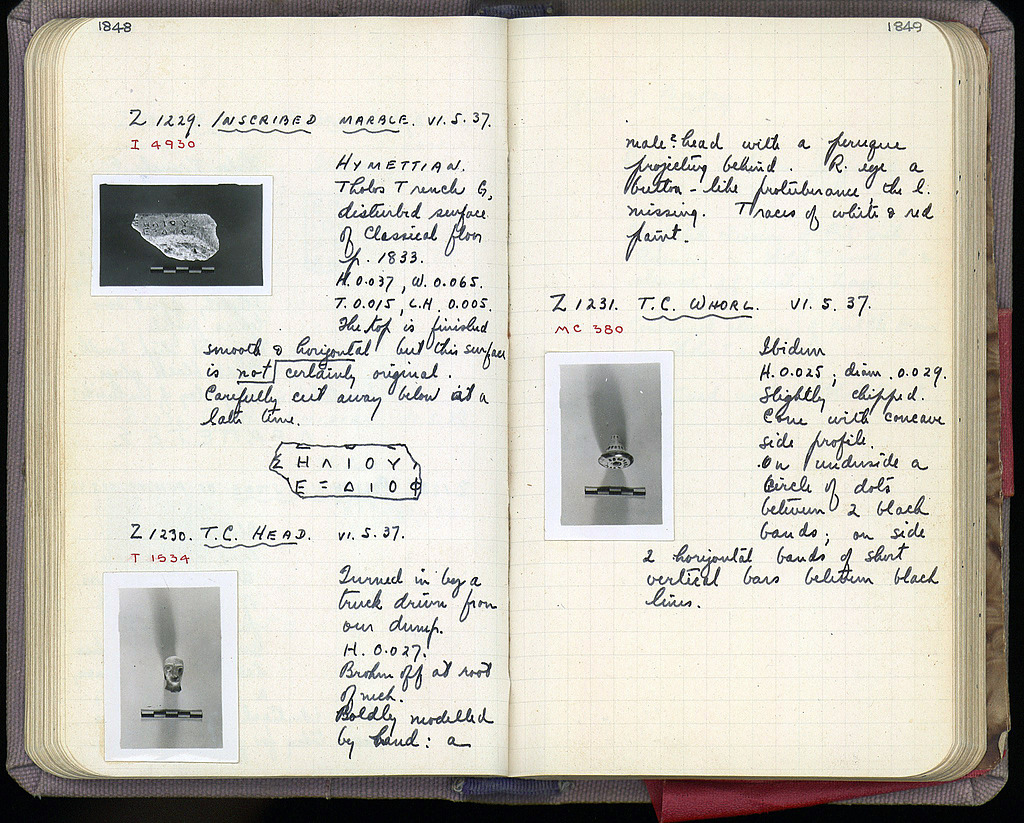 1848
Z 1229. INSCRIBED MARBLE. VI.5.37.
I 4930
HYMETTIAN.
Tholos Trench G,
disturbed surface
of Classical floor
p. 1833.
H. 0.037, W. 0.065.
T. 0.015, L.H. 0.005.
The top is finished
smooth & horizontal but this surface
is not certainly original.
Carefully cut away below at a
late time.
Σ Η Λ Ι Ο Υ
Ε = Δ Ι Ο Φ
Z 1230. T.C. HEAD. VI.5.37.
T 1534
Turned in by a
truck driver from
our dump.
H. 0.027.
Broken off at root
of neck.
Boldly modelled
by hand: a
1849
male? head with a perruque
projecting behind. R. eye a
button-like protuberance the l.
missing. Traces of white & red
paint.
Z 1231. T.C. WHORL. VI.5.37.
MC 380
Ibidem
H. 0.025; diam. 0.029.
Slightly chipped.
Cone with concave
side profile.
On underside a
circle of dots
between 2 black
bands; on side
2 horizontal bands of short
vertical bars between black
lines.